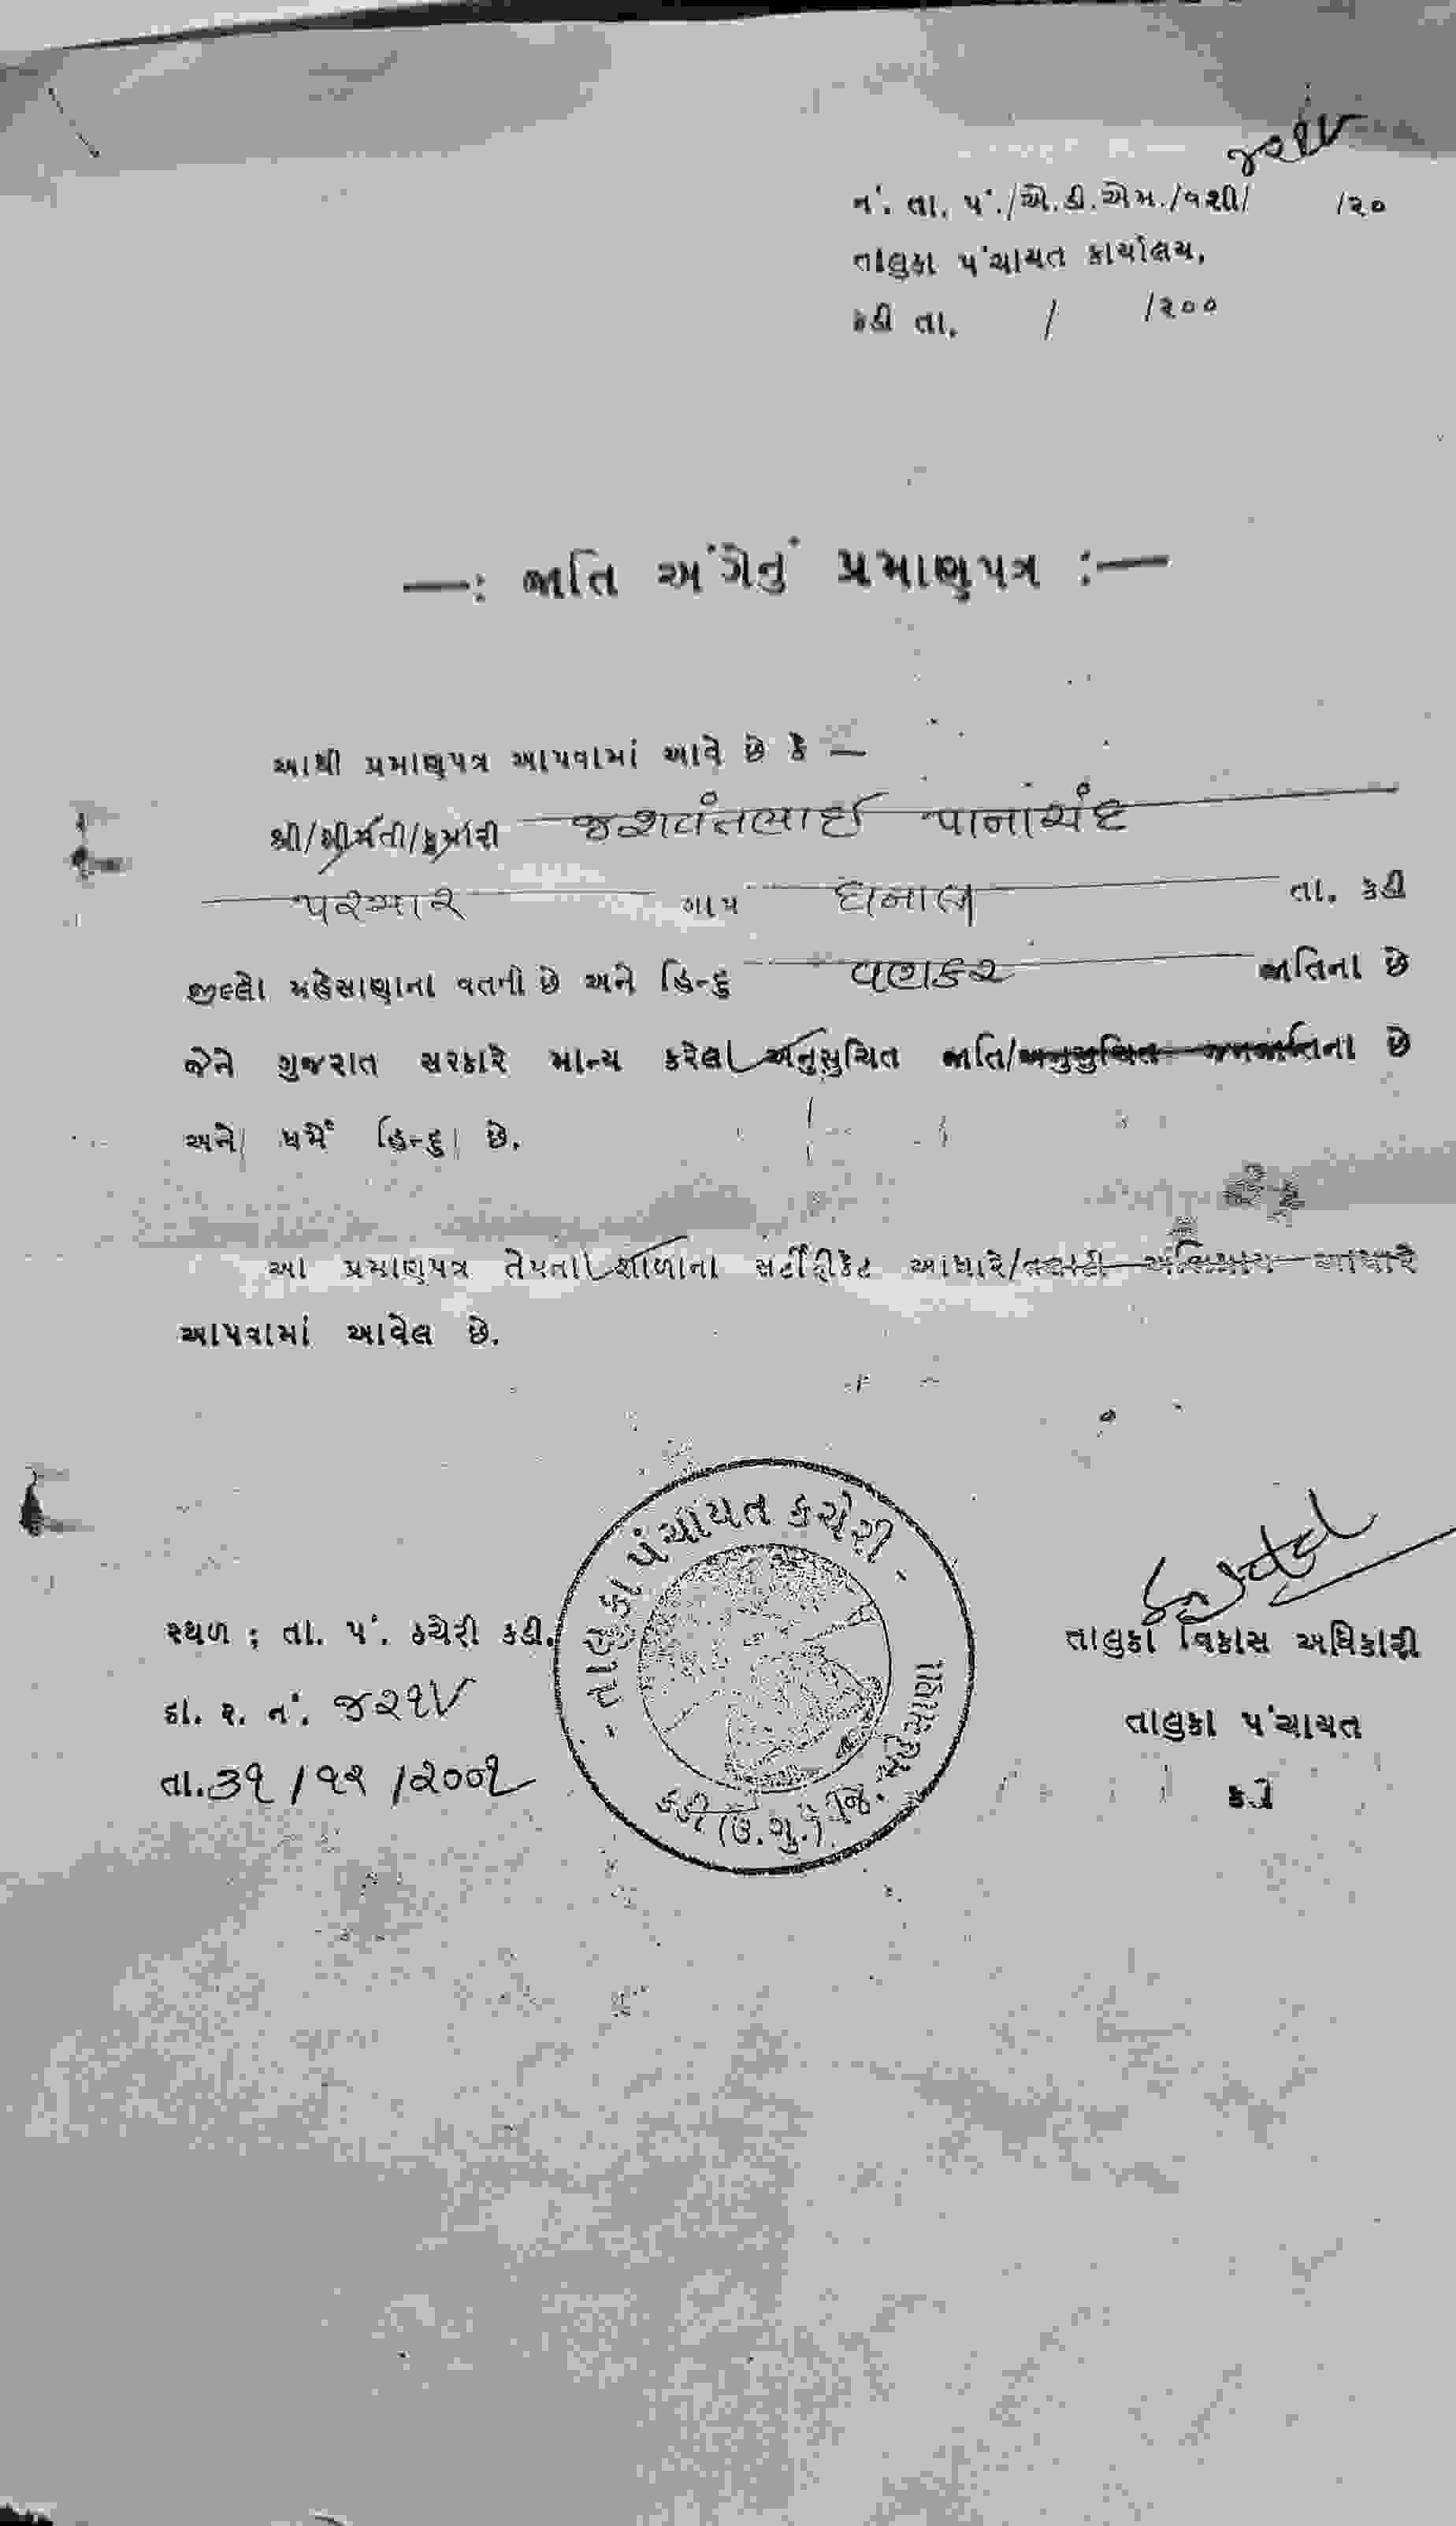 જ૨૧૫
નં. તા. પં./એ.ડી.એમ./વશી/ /૨૦
તાલુકા પંચાયત કાર્યાલય,
કડી તા. / /૨૦૦
—: જાતિ અંગેનું પ્રમાણપત્ર :—
આથી પ્રમાણપત્ર આપવામાં આવે છે કે —
શ્રી/શ્રીમતી/કુમારી જશવંતભાઈ પાનાચંદ
પરમાર ગામ ઘનાલી તા. કડી
જીલ્લો મહેસાણાના વતની છે અને હિન્દુ વણકર જાતિના છે
જેને ગુજરાત સરકારે માન્ય કરેલ અનુસુચિત જાતિ/અનુસુચિત જનજાતિના છે
અને ધર્મે હિન્દુ છે.
આ પ્રમાણપત્ર તેમના શાળાના સર્ટીફીકેટ આધારે/તલાટી અભિપ્રાય આધારે
આપવામાં આવેલ છે.
તાલુકા પંચાયત કચેરી
કડી (ઉ.ગુ.) જિ. મહેસાણા
સ્થળ : તા. પં. કચેરી કડી.
ફા. ર. નં. જ૨૧૫
તા. ૩૧/૧૨/૨૦૦૧
તાલુકા વિકાસ અધિકારી
તાલુકા પંચાયત
કડી